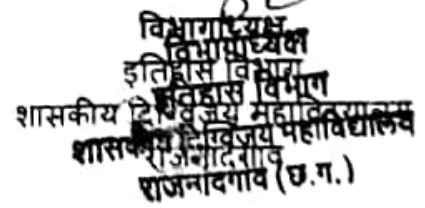 विभागाध्यक्ष
विभागाध्यक्ष
इतिहास विभाग
इतिहास विभाग
शासकीय दिग्विजय महाविद्यालय
शासकीय दिग्विजय महाविद्यालय
राजनांदगांव
राजनांदगांव (छ.ग.)